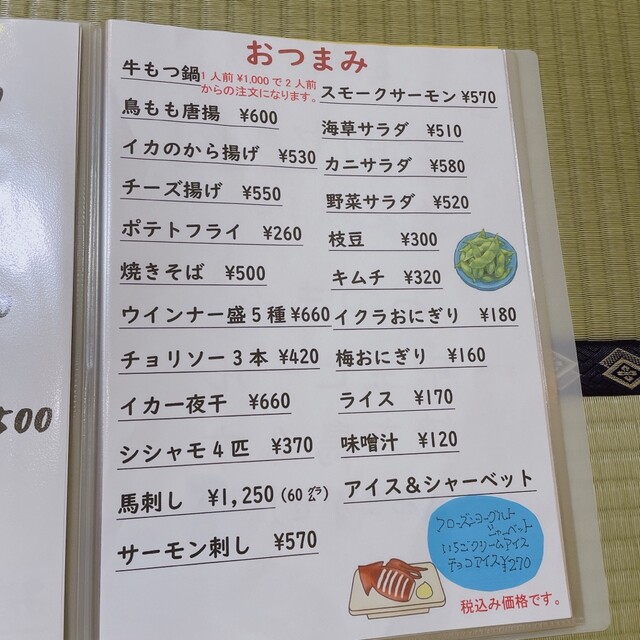 おつまみ
牛もつ鍋 1人前¥1,000で2人前
からの注文になります。
鳥もも唐揚 ¥600
イカのから揚げ ¥530
チーズ揚げ ¥550
ポテトフライ ¥260
焼きそば ¥500
ウインナー盛5種 ¥660
チョリソー3本 ¥420
イカ一夜干 ¥660
シシャモ4匹 ¥370
馬刺し ¥1,250 (60㌘)
サーモン刺し ¥570
スモークサーモン ¥570
海草サラダ ¥510
カニサラダ ¥580
野菜サラダ ¥520
枝豆 ¥300
キムチ ¥320
イクラおにぎり ¥180
梅おにぎり ¥160
ライス ¥170
味噌汁 ¥120
アイス&シャーベット
フローズンヨーグルト
シャーベット
いちごクリームアイス
チョコアイス ¥270
税込み価格です。
500